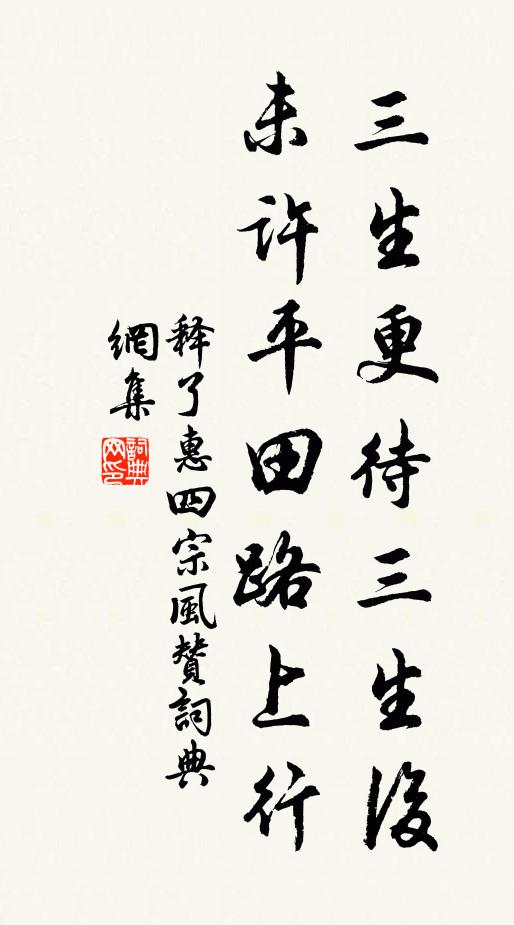 三生更待三生後
未許平田路上行
释了惠四宗風贊詞典
網集
詞典網印